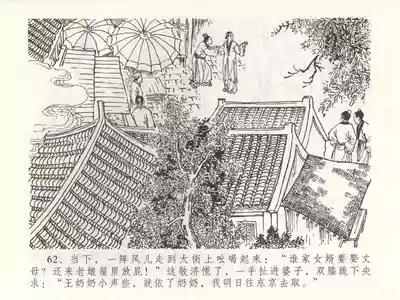 62、当下，一阵风儿走到大街上吆喝起来：“谁家女婿要娶丈
母？还来老娘屋里放屁！”这敬济慌了，一手扯进婆子，双膝跪下央
求：“王奶奶小声些，就依了奶奶，我明日往东京去取。”